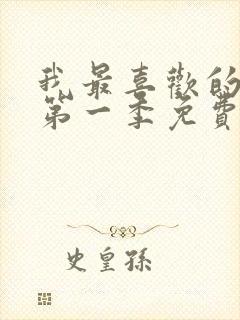 我最喜歡的
第一季免費
史皇孫